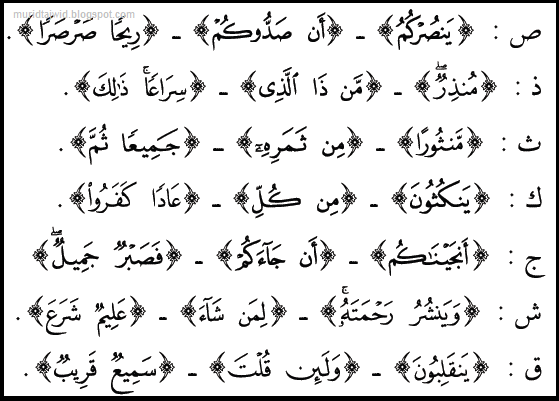 muridtajwid.blogspot.com
ص : ﴿يَنصُرْكُمُ﴾ ـ ﴿أَن صَدُّوكُمْ﴾ ـ ﴿رِيحًا صَرْصَرًا﴾ .
ذ : ﴿مُنذِرٌ ۖ﴾ ـ ﴿مَّن ذَا ٱلَّذِى﴾ ـ ﴿سِرَاعًا ۚ ذَٰلِكَ﴾ .
ث : ﴿مَّنثُورًا﴾ ـ ﴿مِن ثَمَرِهِۦٓ﴾ ـ ﴿جَمِيعًا ثُمَّ﴾ .
ك : ﴿يَنكُثُونَ﴾ ـ ﴿مِن كُلِّ﴾ ـ ﴿عَادًا كَفَرُوا۟﴾ .
ج : ﴿أَنجَيْنَـٰكُم﴾ ـ ﴿أَن جَآءَكُمْ﴾ ـ ﴿فَصَبْرٌ جَمِيلٌ ۖ﴾
ش : ﴿وَيَنشُرُ رَحْمَتَهُۥ ۚ﴾ ـ ﴿لِمَن شَآءَ﴾ ـ ﴿عَلِيمٌ شَرَعَ﴾ .
ق : ﴿يَنقَلِبُونَ﴾ ـ ﴿وَلَئِن قُلْتَ﴾ ـ ﴿سَمِيعٌ قَرِيبٌ﴾ .